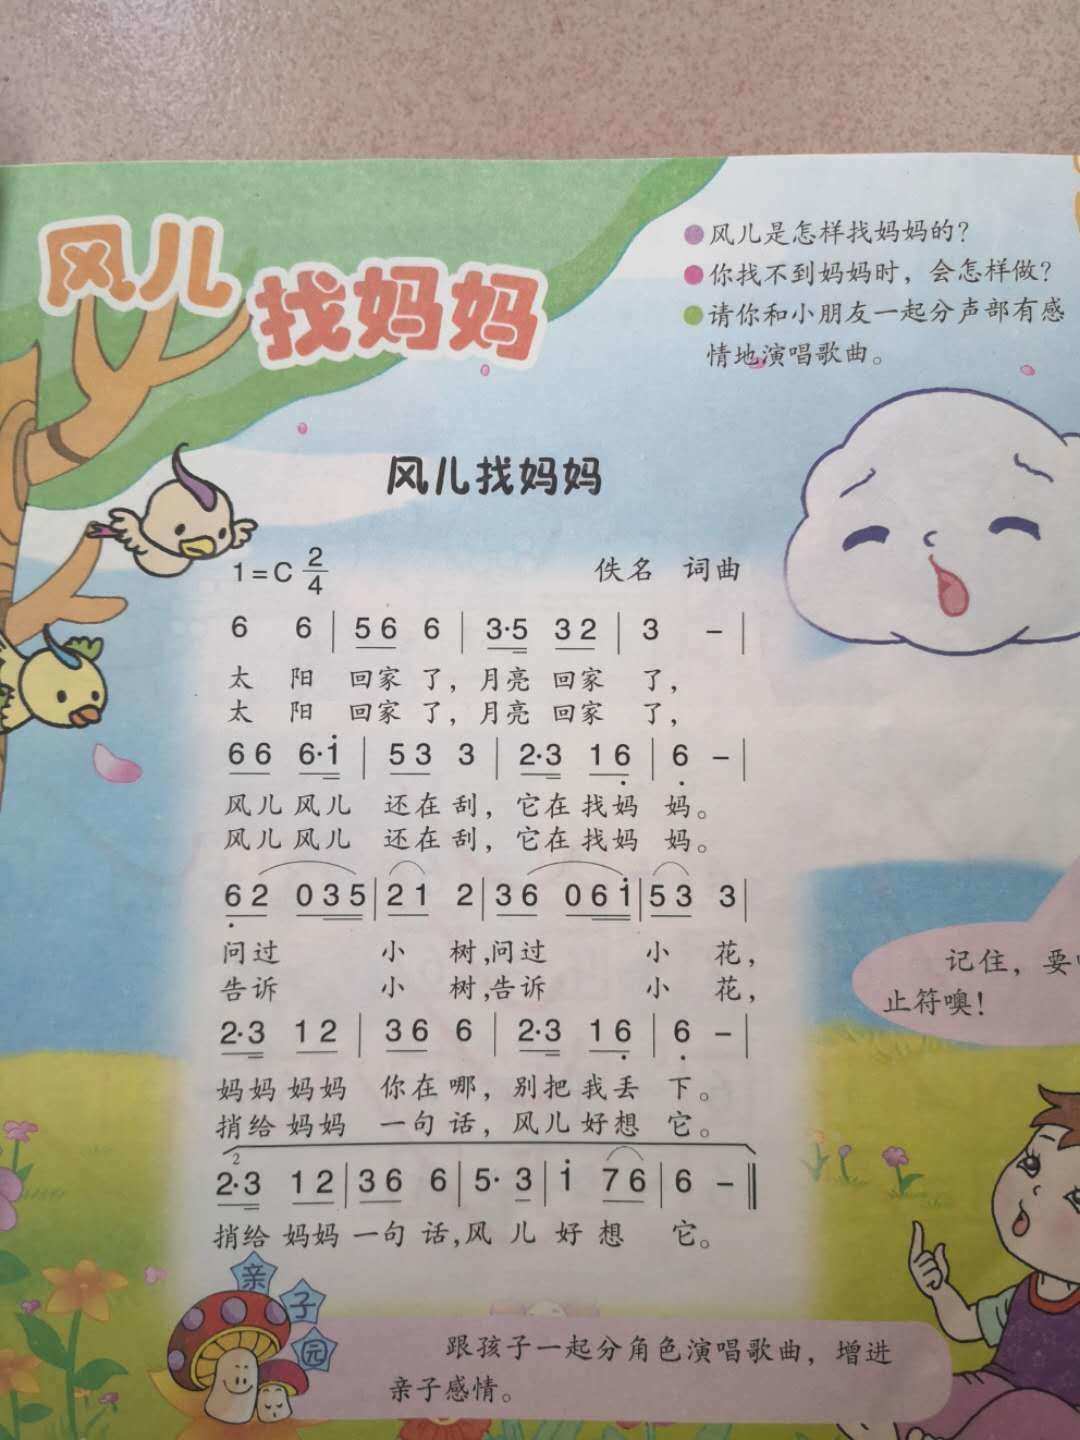 风儿
找妈妈
风儿是怎样找妈妈的？
你找不到妈妈时，会怎样做？
请你和小朋友一起分声部有感
情地演唱歌曲。
风儿找妈妈
1=C 2/4
佚名 词曲
6 6 | 5 6 6 | 3·5 3 2 | 3 － |
太 阳 回家 了，月亮 回家 了，
太 阳 回家 了，月亮 回家 了，
6 6 6·i̇ | 5 3 3 | 2·3 1 6̣ | 6̣ － |
风儿 风儿 还在 刮，它在 找妈 妈。
风儿 风儿 还在 刮，它在 找妈 妈。
6̣ 2 0 3 5 | 2 1 2 | 3 6 0 6 i̇ | 5 3 3 |
问过 小 树，问过 小 花，
告诉 小 树，告诉 小 花，
2·3 1 2 | 3 6 6 | 2·3 1 6̣ | 6̣ － |
妈妈 妈妈 你在 哪，别把 我丢 下。
捎给 妈妈 一句 话，风儿 好想 它。
2
2·3 1 2 | 3 6 6 | 5· 3 | i̇ 7 6 | 6 － ‖
捎给 妈妈 一句 话，风 儿 好 想 它。
记住，要
止符噢！
亲子园
跟孩子一起分角色演唱歌曲，增进
亲子感情。